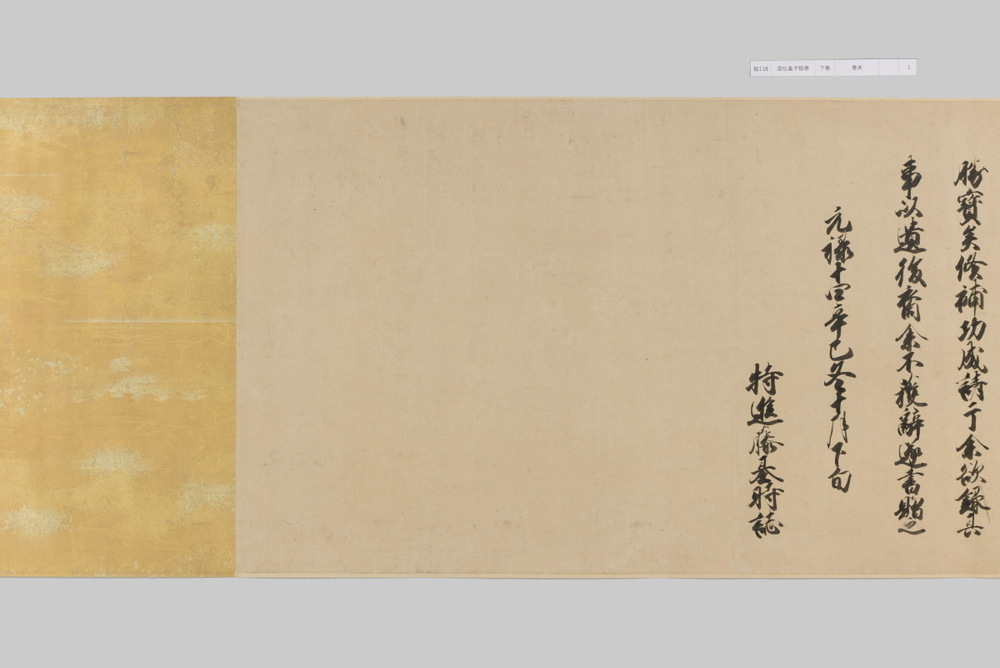 勝寶矣修補功成請于余欲録其
事以遺後裔余不獲辭遂書貽之
元禄十四辛巳冬十月下旬
特進藤基時誌
絵118 酒伝童子絵巻 下巻 巻末 1